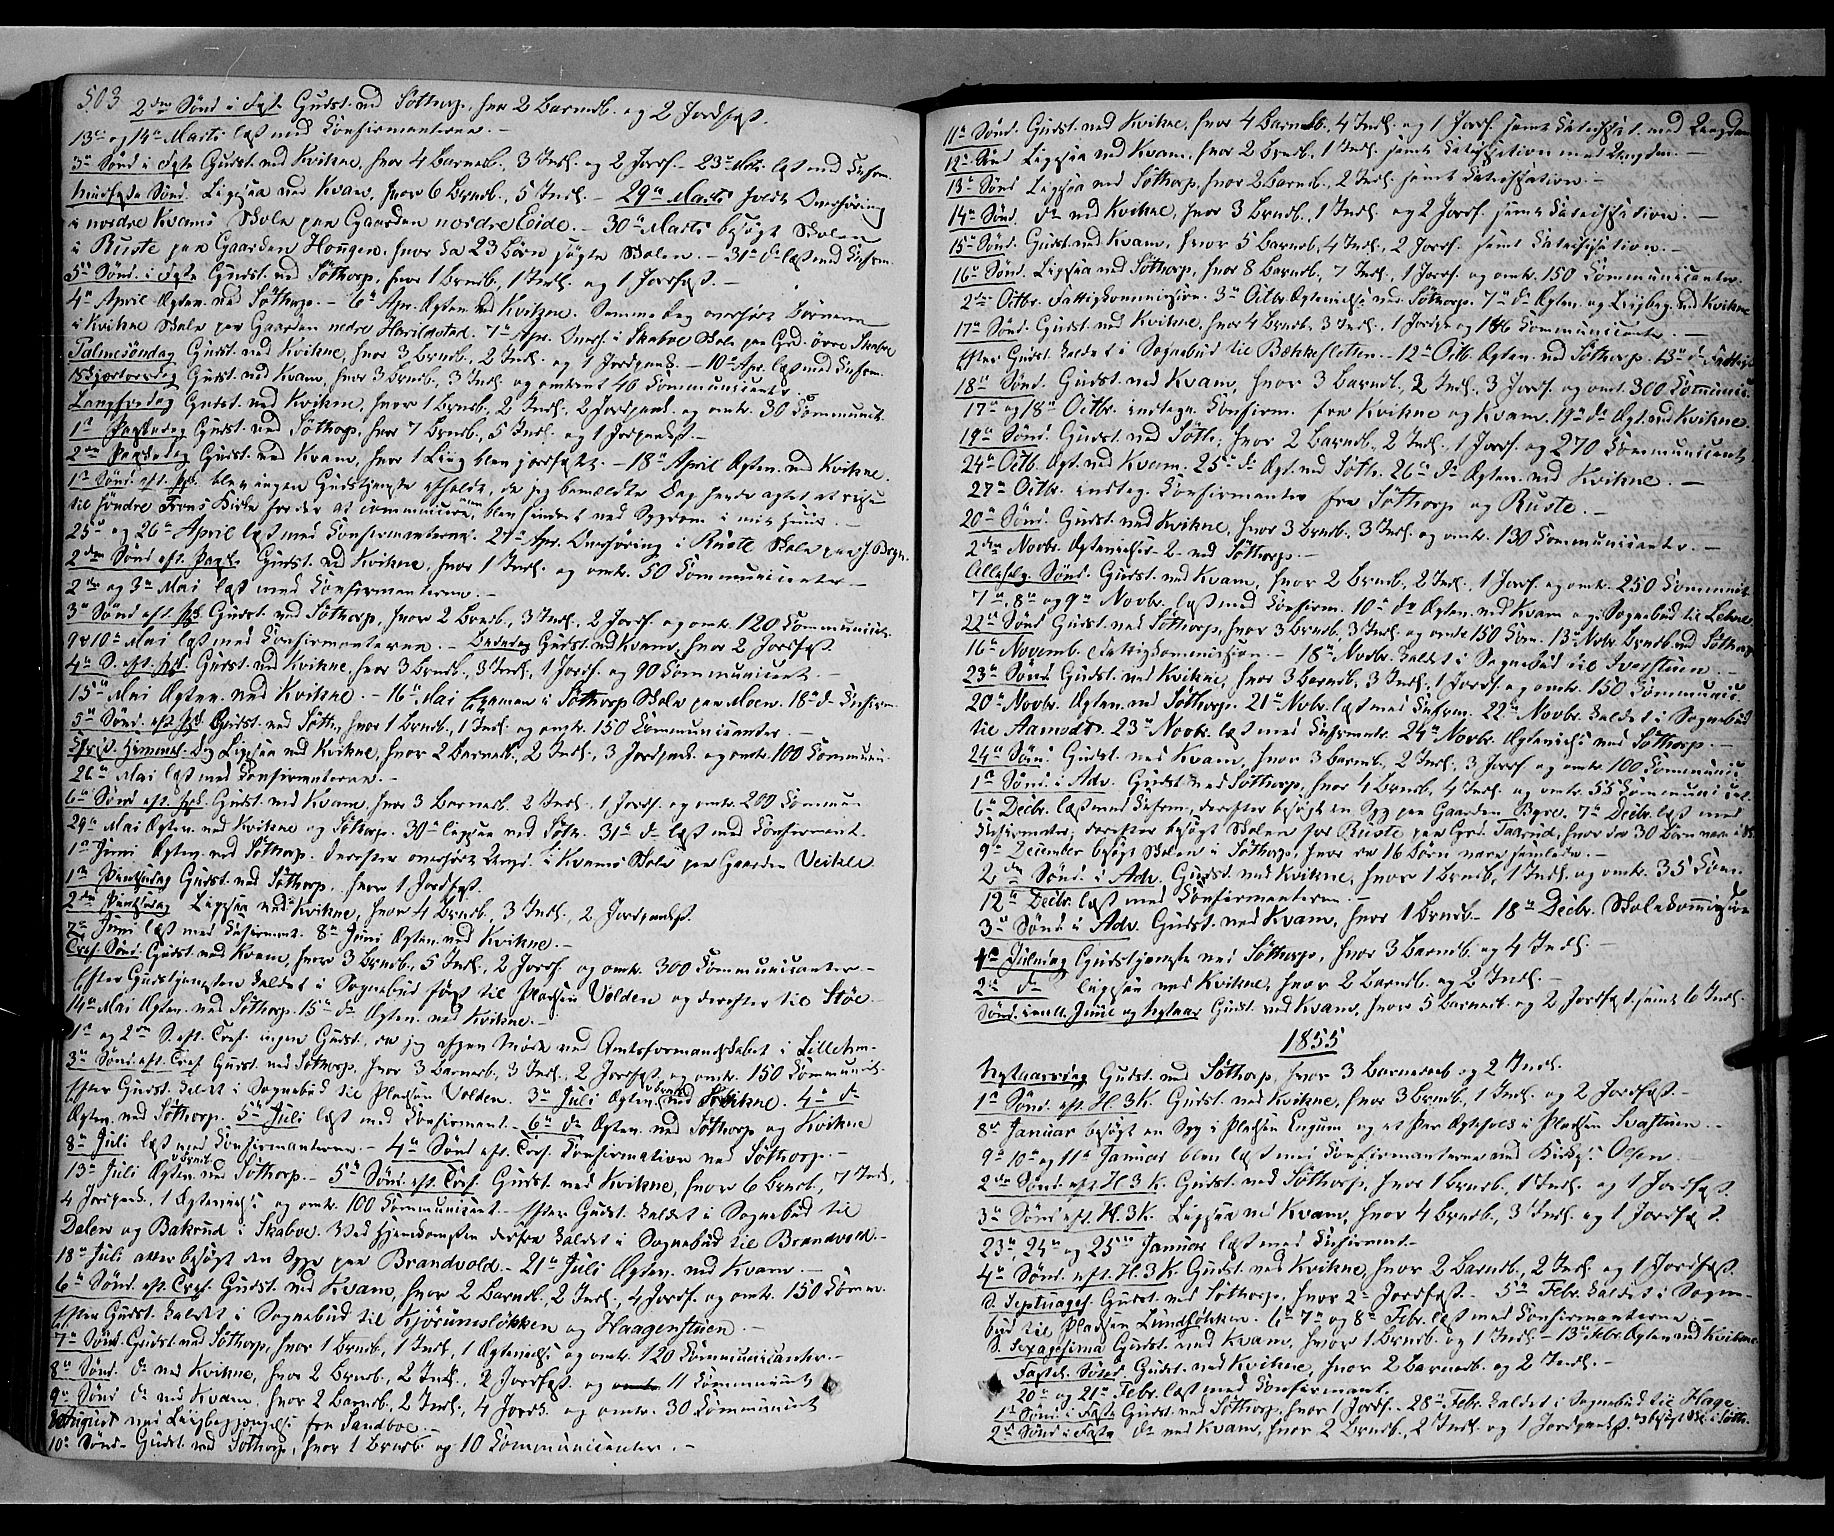 503 2den Sønd i Faste Gudst. ved Søthorp, hvor 2 Barnedb. og 2 Jordfæst.
13de og 14de Marts læst med Confirmanterne. –
3die Sønd i Faste Gudst. ved Kvikne, hvor 4 Barnedb., 3 Intl. og 2 Jordf. – 23de Mts. læst med Cnfirm.
Midfaste Sønd. Ligesaa ved Kvam, hvor 6 Brnedb., 5 Intl. – 29de Marts holdt Overhøring
i nordre Kvams Skole paa Gaarden nordre Eide. – 30te Marts besøgt Skolen
i Ruste paa Gaarden Hougen, hvor da 23 Børn søgte Skolen. – 31te do læst med Cnfirm.
5te Sønd. i Faste Gudst. ved Søthorp, hvor 1 Brnedb., 1 Intl. og 1 Jordfæst. –
4de April Ægtev. ved Søthorp. – 6te Apr. Ægtev. ved Kvikne. Samme Dag overhørt Børnene
i Kvikne Skole paa Gaarden nedre Harildstad. 7de Apr. Overh. i Skabue Skole paa Grd. øvre Skabue
Palmesøndag Gudst. ved Kvikne, hvor 3 Brnedb., 2 Intl. og 1 Jordpaak. – 10de Apr. læst med Cnfirm.
Skjærtorsdag Gudst. ved Kvam, hvor 3 Brnedb., 3 Intl. og omtrent 40 Communicenter.
Langfredag Gudst. ved Kvikne, hvor 1 Brnedb., 2 Intl. 2 Jordpaak. og omtr. 30 Communict.
1ste Paaskedag Gudst. ved Søthorp, hvor 7 Brnedb., 5 Intl. og 1 Jordpaakst. –
2den Paaskedag Gudst. ved Kvam, hvor 1 Liig blev jordfæstet. – 18de April Ægtev. ved Kvikne.
1ste Sønd. eft. Psk. blev ingen Gudstjeneste afholdt, da jeg bemældte Dag havde agtet at reise
til søndre Frons Kirke for der at communicere, men blev hindret ved Sygdom i mit Huus. –
25de og 26de April læst med Confirmanterne. 27de Apr. Overhøring i Ruste Skole paa
2den Sønd eft. Paaske Gudst. ved Kvikne, hvor 1 Intl. og omtr. 50 Communicenter –
2den og 3die Mai læst med Confirmanterne. –
3die Sønd eft. Psk. Gudst. ved Søthorp, hvor 2 Brnedb., 3 Intl., 2 Jordf. og omtr. 120 Communicnt.
9 og 10de Mai læst med Confirmanterne. – Bededag Gudst. ved Kvam, hvor 2 Jordfæst.
4de S. eft. Psk. Gudst. ved Kvikne, hvor 3 Brnedb., 3 Intl., 1 Jordf. og 90 Communicent. –
15de Mai Ægtev. ved Kvikne. – 16de Mai Examen i Søthorp Skole paa Moen. 18de do Cnfirm.
5te Sønd. eft. Psk. Gudst. ved Søth., hvor 1 Brnedb., 1 Intl. og omtr. 150 Communicanter. –
Christ. Himmelf. Dag Ligesaa ved Kvikne, hvor 2 Barnedb., 2 Intl., 3 Jordpaak. og omtr. 100 Commun.
26de Mai læst med Confirmanterne. –
6te Sønd eft. Psk. Gudst. ved Kvam, hvor 3 Barnedb. 2 Intl. 1 Jordf. og omtr. 200 Commun
29de Mai Ægtev. ved Kvikne og Søthorp. 30te ligesaa ved Søth. 31te do læst med Confirmant.
1ste Juni Ægtev. ved Søthorp. Derefter overhørt Ungd. i Kvams Skole paa Gaarden Veikle
1ste Pintsedag Gudst. ved Søthorp, hvor 1 Jordfæst.
2den Pintsedag Ligesaa ved Kvikne, hvor 4 Brnedb., 3 Intl., 2 Jordpaakst.
7de Juni læst med Cnfirmant. 8de Juni Ægtev. ved Kvikne. –
Tref. Sønd. Gudst. ved Kvam, hvor 3 Brnedb., 5 Intl., 2 Jordf. og omtr. 300 Communicanter –
Efter Gudstjenesten kaldet i Sognebud først til Pladsen Volden og derefter til Støe.
14de Mai Ægtev. ved Søthorp. 15de do Ægtev. ved Kvikne. –
1ste og 2den S. eft. Tref. ingen Gudst., da jeg afgav Møde ved Amtsformandskabet i Lillehm. –
3die Sønd. eft. Tref. Gudst. ved Søthorp, hvor 3 Barnedb., 3 Intl., 2 Jordfæst. og omtr. 150 Communict.
Efter Gudst. kaldet i Sognebud til Pladsen Volden. 3die Juli Ægtev. ved Kvikne. 4de do
Ægtev. ved Søthorp. 5te Juli læst med Confirmant. – 6te do Ægtev. ved Søthorp og Kvikne
8de Juli læst med Confirmanterne. – 4de Sønd eft. Tref. Confirmation ved Søthorp. –
13de Juli Ægtev. ved Søthorp. – 5te Sønd. eft. Tref. Gudst. ved Kvikne, hvor 6 Brnedb., 7 Intl.,
4 Jordpaak. 1 Ægteviels. og omtr. 100 Communicent. – Efter Gudst. kaldet i Sognebud til
Dalen og Bakrud i Skabue. Ved Hjemkomsten derfra kaldet i Sognebud til Brandvold. –
18de Juli atter besøgt den Syge paa Brandvold. – 21de Juli Ægtev. ved Kvam. –
6te Sønd. eft. Tref. Gudst. ved Kvam, hvor 2 Barnedb., 2 Intl., 4 Jordf. og omtr. 150 Commun.
Efter Gudst. kaldet i Sognebud til Kjørumsløkken og Haagenstuen. –
7de Sønd. Gudst. ved Søthorp, hvor 1 Brnedb., 1 Intl., 1 Ægteviels. og omtr. 120 Communicanter. –
8de Sønd. do ved Kvikne, hvor 2 Brnedb., 2 Intl., 2 Jordfæst. og 11 Communicnt
9de Sønd do ved Kvam, hvor 2 Barnedb., 2 Intl., 4 Jordf. og omtr. 30 Communicnt
August ved Liigbegjængelse fra Sandboe –
10de Sønd. Gudst. ved Søthorp, hvor 1 Brnedb og 10 Communicenter. –
11te Sønd. Gudst. ved Kvikne, hvor 4 Barnedb., 4 Intl. og 1 Jordf. samt Catechisat. med Ungdom
12te Sønd Ligesaa ved Kvam, hvor 2 Brnedb., 1 Intl. samt Catechisation med Ungdm. –
13de Sønd Ligesaa ved Søthorp, hvor 2 Barnedb., 2 Intl. samt Catechisation. –
14de Sønd. do ved Kvikne, hvor 3 Brnedb., 1 Intl. og 2 Jordf. samt Catechisation. –
15de Sønd. Gudst. ved Kvam, hvor 5 Barnedb., 4 Intl., 2 Jordf. samt Catechisation. –
16de Sønd. Ligesaa ved Søthorp, hvor 8 Barnedb., 7 Intl., 1 Jordf. og omtr. 150 Communicanter.
2den Octbr. Fattigkommission. 3die Octbr. Ægtevielse ved Søthorp. 7de do Ægtev. og Liigbeg. ved Kvikne
17de Sønd. Gudst. ved Kvikne, hvor 4 Brnedb., 3 Intl., 1 Jordpk. og 186 Communicanter. –
Efter Gudst. kaldet i Sognebud til Bækkesletten. – 12te Octb. Ægtev. ved Søthorp. 13de do Fattigk
18de Sønd. Gudst. ved Kvam, hvor 3 Barnedb., 2 Intl., 3 Jordf. og omtr. 300 Communic.
17de og 18de Octbr. indtegn. Confirm. fra Kvikne og Kvam. 19de do Ægt. ved Kvikne.
19de Sønd. Gudst. ved Søth., hvor 2 Barnedb., 2 Intl., 1 Jordf. og 270 Communicent.
24de Octb. Ægt. ved Kvam. 25de do Ægt. ved Søth. 26de do Ægtev. ved Kvikne. –
27de Octbr. indteg. Confirmanter fra Søthorp og Ruste. –
20de Sønd. Gudst. ved Kvikne, hvor 3 Brnedb., 3 Intl. og omtr. 130 Communicanter. –
2den Novbr. Ægtevielse 2 ved Søthorp. –
Allehelg. Sønd. Gudst. ved Kvam, hvor 2 Brnedb., 2 Intl., 1 Jordf. og omtr. 250 Communict
7de, 8de og 9de Novbr. læst med Confirm. 10de do Ægtev. ved Kvam og i Sognebud til Lehne
22de Sønd Gudst. ved Søthorp, hvor 3 Brnedb., 3 Intl. og omtr 150 Com. 13de Novbr. Brnedb. ved Søthorp
16de Novemb. Fattigkommission. – 18de Novbr. kaldet i Sognebud til Iverstuen. –
23de Sønd. Gudst. ved Kvikne, hvor 3 Barnedb., 3 Intl., 1 Jordf. og omtr. 150 Communic.
20de Novbr. Ægtev. ved Søthorp. 21de Nvbr. læst med Cnfirm. 22de Novbr. kaldet i Sognebud
til Aamodt. 23de Novbr. læst med Cnfirmntr. 24de Novbr. Ægteviels. ved Søthorp. –
24de Sønd. Gudst. ved Kvam, hvor 3 Barnedb., 2 Intl., 3 Jordf. og omtr. 100 Communic
1ste Sønd. i Adv. Gudst. ved Søthorp, hvor 4 Brnedb., 4 Intl. og omtr. 55 Communicnt.
6te Decbr. læst med Cnfirm., derefter besøgt en Syg paa Gaarden Byre. 7de Decbr. læst med
Cnfirmanter, derefter besøgt Skolen for Ruste paa Grd. Taarud, hvor der 30 Børn vare
9de December besøgt Skolen i Søthorp, hvor da 16 Børn vare samlede. –
2den Sønd. i Adv. Gudst. ved Kvikne, hvor 1 Brnedb., 1 Intl. og omtr. 35 Com.
12te Decbr. læst med Confirmanterne. –
3die Sønd i Adv. Gudst. ved Kvam, hvor 1 Brnedb. – 18de Decbr. Skolekommission
1ste Juledag Gudstjeneste ved Søthorp, hvor 3 Barnedb. og 4 Intl. –
2den do ligesaa ved Kvikne, hvor 2 Barnedb. og 2 Intl. –
Sønd. imell. Juul og Nytaar Gudst. ved Kvam, hvor 5 Barnedb. og 2 Jordfæst. samt 6 Intl.
1855
Nytaarsdag Gudst. ved Søthorp, hvor 3 Barnedaab og 2 Intl.
1ste Sønd. eft. H. 3 K. Gudst. ved Kvikne, hvor 3 Brnedb., 1 Intl. og 2 Jordfæst. –
8de Januar besøgt en Syg i Pladsen Engum og et Par Ægtefolk i Pladsen Svastuen. –
9de 10de og 11te Januar blev læst med Confirmanterne ved Kirkes. Olsen. –
2den Sønd. eft. H. 3 K. Gudst. ved Søthorp, hvor 1 Brnedb., 1 Intl. og 1 Jordfæst.
3die Sønd eft. H. 3 K. Ligesaa ved Kvam, hvor 4 Brnedb., 3 Intl. og 1 Jordfæst.
23de 24de og 25de Januar læst med Cnfirmant. –
4de Sønd. eft. H. 3 K. Gudst. ved Kvikne, hvor 2 Barnedb., 2 Intl. og 1 Jordfæst.
S. Septuages. Gudst. ved Søthorp, hvor 2 Jordfæst. – 5te Febr. kaldet i Sogne-
bud til Pladsen Lundsløkken. 6te 7de og 8de Febr. læst med Confirmanterne –
S. Sexagesima Gudst. ved Kvam, hvor 1 Brnedb. og 1 Intl. – 13de Febr. Ægtev. ved Kvikne
Fastel. Sønd Gudst. ved Kvikne, hvor 2 Barnedb. og 2 Intl. –
20de og 21de Febr. læst med Confirmant.
1ste Sønd. i Faste Gudst. ved Søthorp, hvor 1 Jordf. – 28de Febr. kaldet i Sognebud til Hage
2den Sønd i Faste do ved Kvam, hvor 2 Brnedb., 2 Intl. og 1 Jordpaakst.